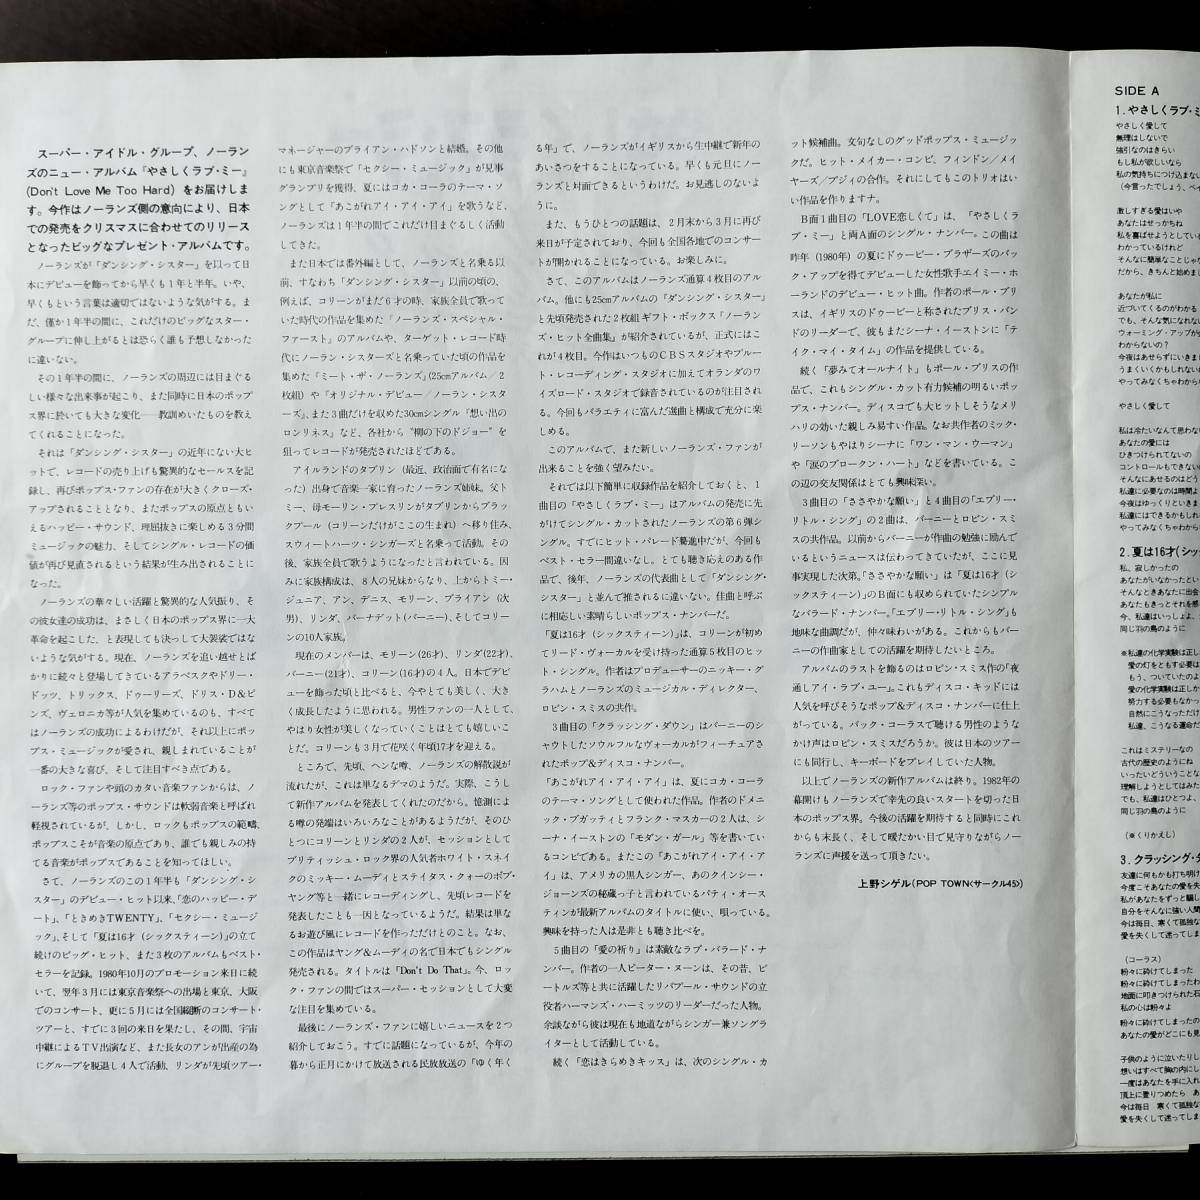 スーパー・アイドル・グループ、ノーラン
ズのニュー・アルバム『やさしくラブ・ミー』
(Don't Love Me Too Hard) をお届けしま
す。今作はノーランズ側の意向により、日本
での発売をクリスマスに合わせてのリリース
となったビッグなプレゼント・アルバムです。
ノーランズが「ダンシング・シスター」を以って日
本にデビューを飾ってから早くも1年と半年。いや、
早くもという言葉は適切ではないような気がする。ま
だ、僅か1年半の間に、これだけのビッグなスター・
グループに伸し上がるとは恐らく誰も予想しなかった
に違いない。
その1年半の間に、ノーランズの周辺には目まぐる
しい様々な出来事が起こり、また同時に日本のポップ
ス界に於いても大きな変化──教訓めいたものを教え
てくれることになった。
それは「ダンシング・シスター」の近年にない大ヒ
ットで、レコードの売り上げも驚異的なセールスを記
録し、再びポップス・ファンの存在が大きくクローズ・
アップされることとなり、またポップスの原点ともい
えるハッピー・サウンド、理屈抜きに楽しめる3分間
ミュージックの魅力、そしてシングル・レコードの価
値が再び見直されるという結果が生み出されることに
なった。
ノーランズの華々しい活躍と驚異的な人気振り、そ
の彼女達の成功は、まさしく日本のポップス界に一大
革命を起こした、と表現しても決っして大袈裟ではな
いような気がする。現在、ノーランズを追い越せとば
かりに続々と登場してきているアラベスクやドリー・
ドッツ、トリックス、ドゥーリーズ、ドリス・D&ピ
ンズ、ヴェロニカ等が人気を集めているのも、すべて
はノーランズの成功によるわけだが、それ以上にポッ
プス・ミュージックが愛され、親しまれていることが
一番の大きな喜び、そして注目すべき点である。
ロック・ファンや頭のカタい音楽ファンからは、ノ
ーランズ等のポップス・サウンドは軟弱音楽と呼ばれ
軽視されているが、しかし、ロックもポップスの範疇、
ポップスこそが音楽の原点であり、誰でも親しみの持
てる音楽がポップスであることを知ってほしい。
さて、ノーランズのこの1年半も「ダンシング・シ
スター」のデビュー・ヒット以来、「恋のハッピー・デ
ート」、「ときめきTWENTY」、「セクシー・ミュージ
ック」、そして「夏は16才 (シックスティーン)」の立て
続けのビッグ・ヒット、また3枚のアルバムもベスト・
セラーを記録。1980年10月のプロモーション来日に続
いて、翌年3月には東京音楽祭への出場と東京、大阪
でのコンサート、更に5月には全国縦断のコンサート・
ツアーと、すでに3回の来日を果たし、その間、宇宙
中継によるTV出演など、また長女のアンが出産の為
にグループを脱退し4人で活動、リンダが先頃ツアー・
マネージャーのブライアン・ハドソンと結婚。その他
にも東京音楽祭で「セクシー・ミュージック」が見事
グランプリを獲得、夏にはコカ・コーラのテーマ・ソ
ングとして「あこがれアイ・アイ・アイ」を歌うなど、
ノーランズは1年半の間でこれだけ目まぐるしく活動
してきた。
また日本では番外編として、ノーランズと名乗る以
前、すなわち「ダンシング・シスター」以前の頃の、
例えば、コリーンがまだ6才の時、家族全員で歌って
いた時代の作品を集めた『ノーランズ・スペシャル・
ファースト』のアルバムや、ターゲット・レコード時
代にノーラン・シスターズと名乗っていた頃の作品を
集めた『ミート・ザ・ノーランズ』(25cmアルバム/2
枚組) や『オリジナル・デビュー/ノーラン・シスタ
ーズ』、また3曲だけを収めた30cmシングル「想い出の
ロンリネス」など、各社から“柳の下のドジョー”を
狙ってレコードが発売されたほどである。
アイルランドのタブリン (最近、政治面で有名にな
った) 出身で音楽一家に育ったノーラン姉妹。父ト
ミー、母モーリン・ブレスリンがタブリンからブラッ
クプール (コリーンだけがここの生まれ) へ移り住み、
スウィートハーツ・シンガーズと名乗って活動。その
後、家族全員で歌うようになったと言われている。因
みに家族構成は、8人の兄妹からなり、上からトミー・
ジュニア、アン、デニス、モリーン、ブライアン (次
男)、リンダ、バーナデット(バーニー)、そしてコリー
ンの10人家族。
現在のメンバーは、モリーン(26才)、リンダ(22才)、
バーニー(21才)、コリーン(16才)の4人。日本でデビ
ューを飾った頃と比べると、今やとても美しく、大き
く成長したように思われる。男性ファンの一人として、
やはり女性が美しくなっていくことはとても嬉しいこ
とだ。コリーンも3月で花咲く年頃17才を迎える。
ところで、先頃、ヘンな噂、ノーランズの解散説が
流れたが、これは単なるデマのようだ。実際、こうし
て新作アルバムを発表してくれたのだから。憶測によ
る噂の発端はいろいろなことがあるようだが、そのひ
とつにコリーンとリンダの2人が、セッションとして
ブリティッシュ・ロック界の人気者ホワイト・スネイ
クのミッキー・ムーディとステイタス・クォーのボブ・
ヤング等と一緒にレコーディングし、先頃レコードを
発表したことも一因となっているようだ。結果は単な
るお遊び風にレコードを作っただけとのこと。なお、
この作品はヤング&ムーディの名で日本でもシングル
発売される。タイトルは「Don't Do That」。今、ロッ
ク・ファンの間ではスーパー・セッションとして大変
な注目を集めている。
最後にノーランズ・ファンに嬉しいニュースを2つ
紹介しておこう。すでに話題になっているが、今年の
暮から正月にかけて放送される民放放送の「ゆく年く
る年」で、ノーランズがイギリスから生中継で新年の
あいさつをすることになっている。早くも元日にノー
ランズと対面できるというわけだ。お見逃しのないよ
うに。
また、もうひとつの話題は、2月末から3月に再び
来日が予定されており、今回も全国各地でのコンサー
トが開かれることになっている。お楽しみに。
さて、このアルバムはノーランズ通算4枚目のアル
バム。他にも25cmアルバムの『ダンシング・シスター』
と先頃発売された2枚組ギフト・ボックス『ノーラン
ズ・ヒット全曲集』が紹介されているが、正式にはこ
れが4枚目。今作はいつものCBSスタジオやブルー
ト・レコーディング・スタジオに加えてオランダのワ
イズロード・スタジオで録音されているのが注目され
る。今回もバラエティに富んだ選曲と構成で充分に楽
しめる。
このアルバムで、また新しいノーランズ・ファンが
出来ることを強く望みたい。
それでは以下簡単に収録作品を紹介しておくと、1
曲目の「やさしくラブ・ミー」はアルバムの発売に先
がけてシングル・カットされたノーランズの第6弾シ
ングル。すでにヒット・パレード驀進中だが、今回も
ベスト・セラー間違いなし。とても聴き応えのある作
品で、後年、ノーランズの代表曲として「ダンシング・
シスター」と並んで推されるに違いない。佳曲と呼ぶ
に相応しい素晴らしいポップス・ナンバーだ。
「夏は16才 (シックスティーン)」は、コリーンが初め
てリード・ヴォーカルを受け持った通算5枚目のヒッ
ト・シングル。作者はプロデューサーのニッキー・グ
ラハムとノーランズのミュージカル・ディレクター、
ロビン・スミスの共作。
3曲目の「クラッシング・ダウン」はバーニーのシ
ャウトしたソウルフルなヴォーカルがフィーチュアさ
れたポップ&ディスコ・ナンバー。
「あこがれアイ・アイ・アイ」は、夏にコカ・コーラ
のテーマ・ソングとして使われた作品。作者のドメニ
ック・ブガッティとフランク・マスカーの2人は、シ
ーナ・イーストンの「モダン・ガール」等を書いてい
るコンビである。またこの「あこがれアイ・アイ・ア
イ」は、アメリカの黒人シンガー、あのクインシー・
ジョーンズの秘蔵っ子と言われているパティ・オース
ティンが最新アルバムのタイトルに使い、唄っている。
興味を持った人は是非とも聴き比べを。
5曲目の「愛の祈り」は素敵なラブ・バラード・ナ
ンバー。作者の一人ピーター・ヌーンは、その昔、ビ
ートルズ等と共に活躍したリバプール・サウンドの立
役者ハーマンズ・ハーミッツのリーダーだった人物。
余談ながら彼は現在も地道ながらシンガー兼ソングラ
イターとして活動している。
続く「恋はきらめきキッス」は、次のシングル・カ
ット候補曲。文句なしのグッドポップス・ミュージッ
クだ。ヒット・メイカー・コンビ、フィンドン/メイ
ヤーズ/プジィの合作。それにしてもこのトリオはい
い作品を作りますナ。
B面1曲目の「LOVE恋しくて」は、「やさしくラ
ブ・ミー」と両A面のシングル・ナンバー。この曲は
昨年 (1980年) の夏にドゥービー・ブラザーズのバッ
ク・アップを得てデビューした女性歌手エイミー・ホ
ーランドのデビュー・ヒット曲。作者のポール・ブリ
スは、イギリスのドゥービーと称されたブリス・バン
ドのリーダーで、彼もまたシーナ・イーストンに「テ
イク・マイ・タイム」の作品を提供している。
続く「夢みてオールナイト」もポール・ブリスの作
品で、これもシングル・カット有力候補の明るいポッ
プス・ナンバー。ディスコでも大ヒットしそうなメリ
ハリの効いた親しみ易い作品。なお共作者のミック・
リーソンもやはりシーナに「ワン・マン・ウーマン」
や「涙のブロークン・ハート」などを書いている。こ
の辺の交友関係はとても興味深い。
3曲目の「ささやかな願い」と4曲目の「エブリー・
リトル・シング」の2曲は、バーニーとロビン・スミ
スの共作品。以前からバーニーが作曲の勉強に励んで
いるというニュースは伝わってきていたが、ここに見
事実現した次第。「ささやかな願い」は「夏は16才 (シ
ックスティーン)」のB面にも収められていたシンプル
なバラード・ナンバー。「エブリー・リトル・シング」も
地味な曲調だが、仲々味わいがある。これからもバー
ニーの作曲家としての活躍を期待したいところ。
アルバムのラストを飾るのはロビン・スミス作の「夜
通しアイ・ラブ・ユー」。これもディスコ・キッドには
人気を呼びそうなポップ&ディスコ・ナンバーに仕上
がっている。バック・コーラスで聴ける男性のような
かけ声はロビン・スミスだろうか。彼は日本のツアー
にも同行し、キーボードをプレイしていた人物。
以上でノーランズの新作アルバムは終り。1982年の
幕開けもノーランズで幸先の良いスタートを切った日
本のポップス界。今後の活躍を期待すると同時にこれ
からも末長く、そして暖たかい目で見守りながらノー
ランズに声援を送って頂きたい。
上野シゲル(POP TOWN<サークル45>)
SIDE A
1. やさしくラブ・ミ
やさしく愛して
無理はしないで
強引なのはきらい
もし私が欲しいなら
私の気持ちにつけ込まない
(今言ったでしょう、ベイ
激しすぎる愛はいや
あなたはせっかちね
私を喜ばせようとしてい
わかっているけれど
そんなに簡単なことじゃな
だから、きちんと始めまし
あなたが私に
近づいてくるのがわかる
でも、そんな気になれない
ウォーミング・アップが
わからないの?
今夜はあせらずにいきま
うまくいくかもしれない
やってみなくちゃわから
やさしく愛して
私は冷たいなんて思わない
あなたの愛には
ひきつけられてないの
コントロールもできない
そんなにあせるのはどう
私達に必要なのは時間よ
今夜はゆっくりといきま
私達にはできるかもしれ
やってみなくちゃわから
2. 夏は16才(シッ
私、寂しかったの
あなたがいなかったとい
そんなときあなたに出会
あなたもきっとそれを感
今、私達はいっしょよ、
同じ羽の鳥のように
※私達の化学実験は正し
愛の灯をともす必要は
もう、ついていたのよ
愛の化学実験は正しか
努力する必要もなかっ
自然にこうなっただけ
私達、こうなる運命だ
これはミステリーなの
古代の歴史のようにね
いったいどういうことな
理解しようとしてはみた
でも、私達はひとつよ、
同じ羽の鳥のように
(※くりかえし)
3. クラッシング・ダ
友達に何もかも打ち明け
今度こそあなたの愛を失
私があなたをずっと騙し
自分をそんなに強い人間
今は毎日、寒くて孤独な
愛を失くして迷ってしま
(コーラス)
粉々に砕けてしまった
粉々に砕けてしまったわ
地面に叩きつけられた石
私の心は粉々よ
粉々に砕けてしまったの
あなたの愛がどこにも見
子供のように泣いたりし
想いはすべて胸の内にし
一度はあなたを手に入れ
頂上に登りつめたら あ
今は毎日 寒くて孤独な
愛を失くして迷ってしま